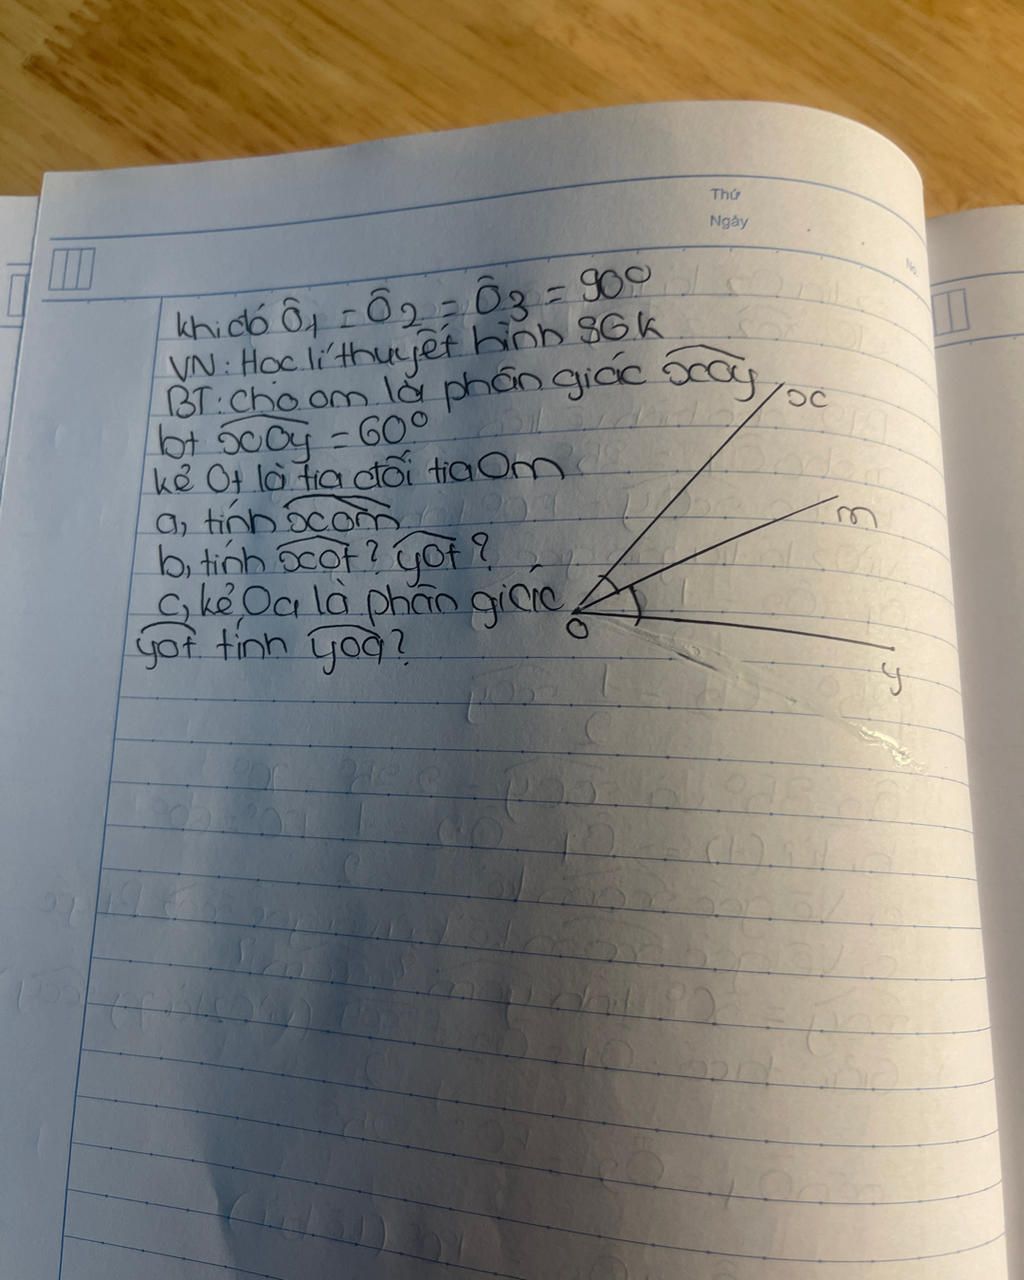 Thứ
Ngày
No.
khi đó Ô1 = Ô2 = Ô3 = 90°
VN: Học lí thuyết hình SGK
BT: cho om là phân giác xOy
bt xOy = 60°
kẻ Ot là tia đối tia Om
a, tính xom
b, tính xot? yot?
c, kẻ Oa là phân giác
yot tính yoa?
x
m
O
y